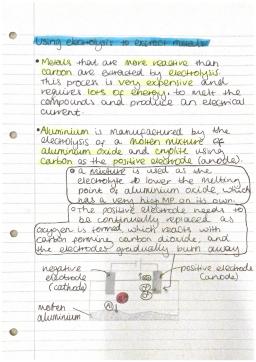 Using electrolysis to extract metals
• Metals that are more reactive than
carbon are extracted by electrolysis.
This process is very expensive and
requires lots of energy, to melt the
compounds and produce an electrical
current.
• Aluminium is manufactured by the
electrolysis of a molten mixture of
aluminium oxide and cryolite using
carbon as the positive electrode (anode).
• a mixture is used as the
electrolyte to lower the melting
point of aluminium oxide, which
has a very high MP on its own.
• The positive electrode needs to
be continually replaced as
oxygen is formed, which reacts with
carbon forming carbon dioxide, and
the electrodes gradually burn away
negative electrode (cathode)
positive electrode (anode)
molten aluminium